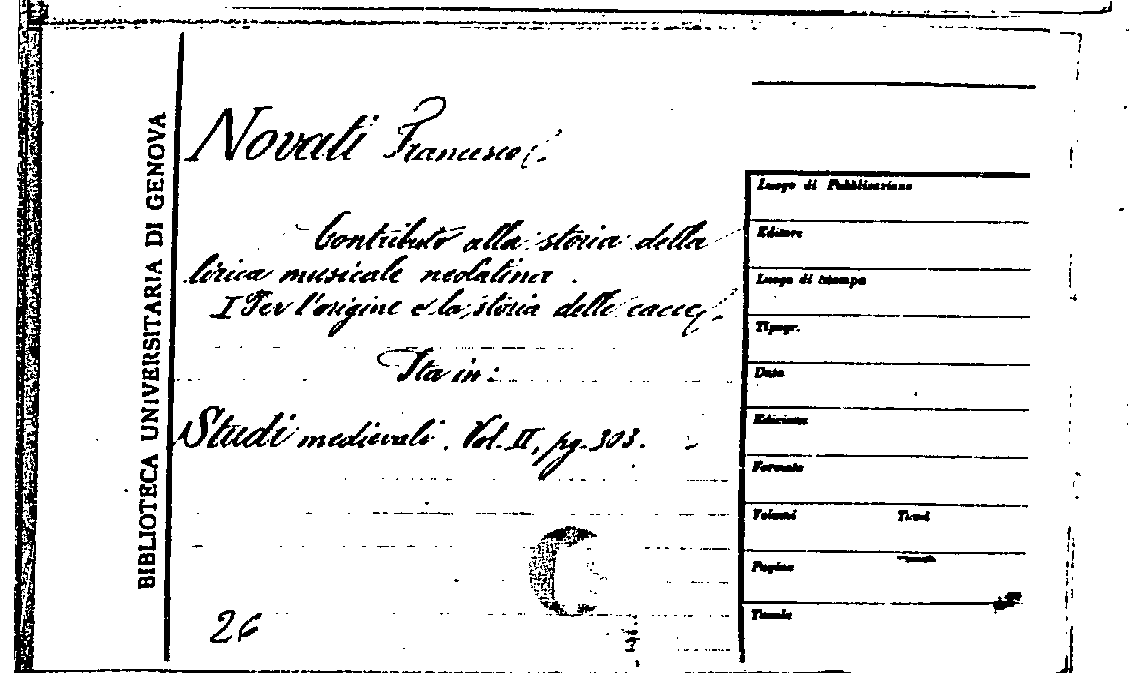 BIBLIOTECA UNIVERSITARIA DI GENOVA
Novati Francesco
Contributo alla storia della
lirica musicale neolatina.
I Per l'origine e la storia delle cacce
Sta in:
Studi medievali. Vol. II, pg. 303.
26
Luogo di Pubblicazione
Editore
Luogo di stampa
Tipogr.
Data
Edizione
Formato
Volumi Tomi
Pagine
Tavole